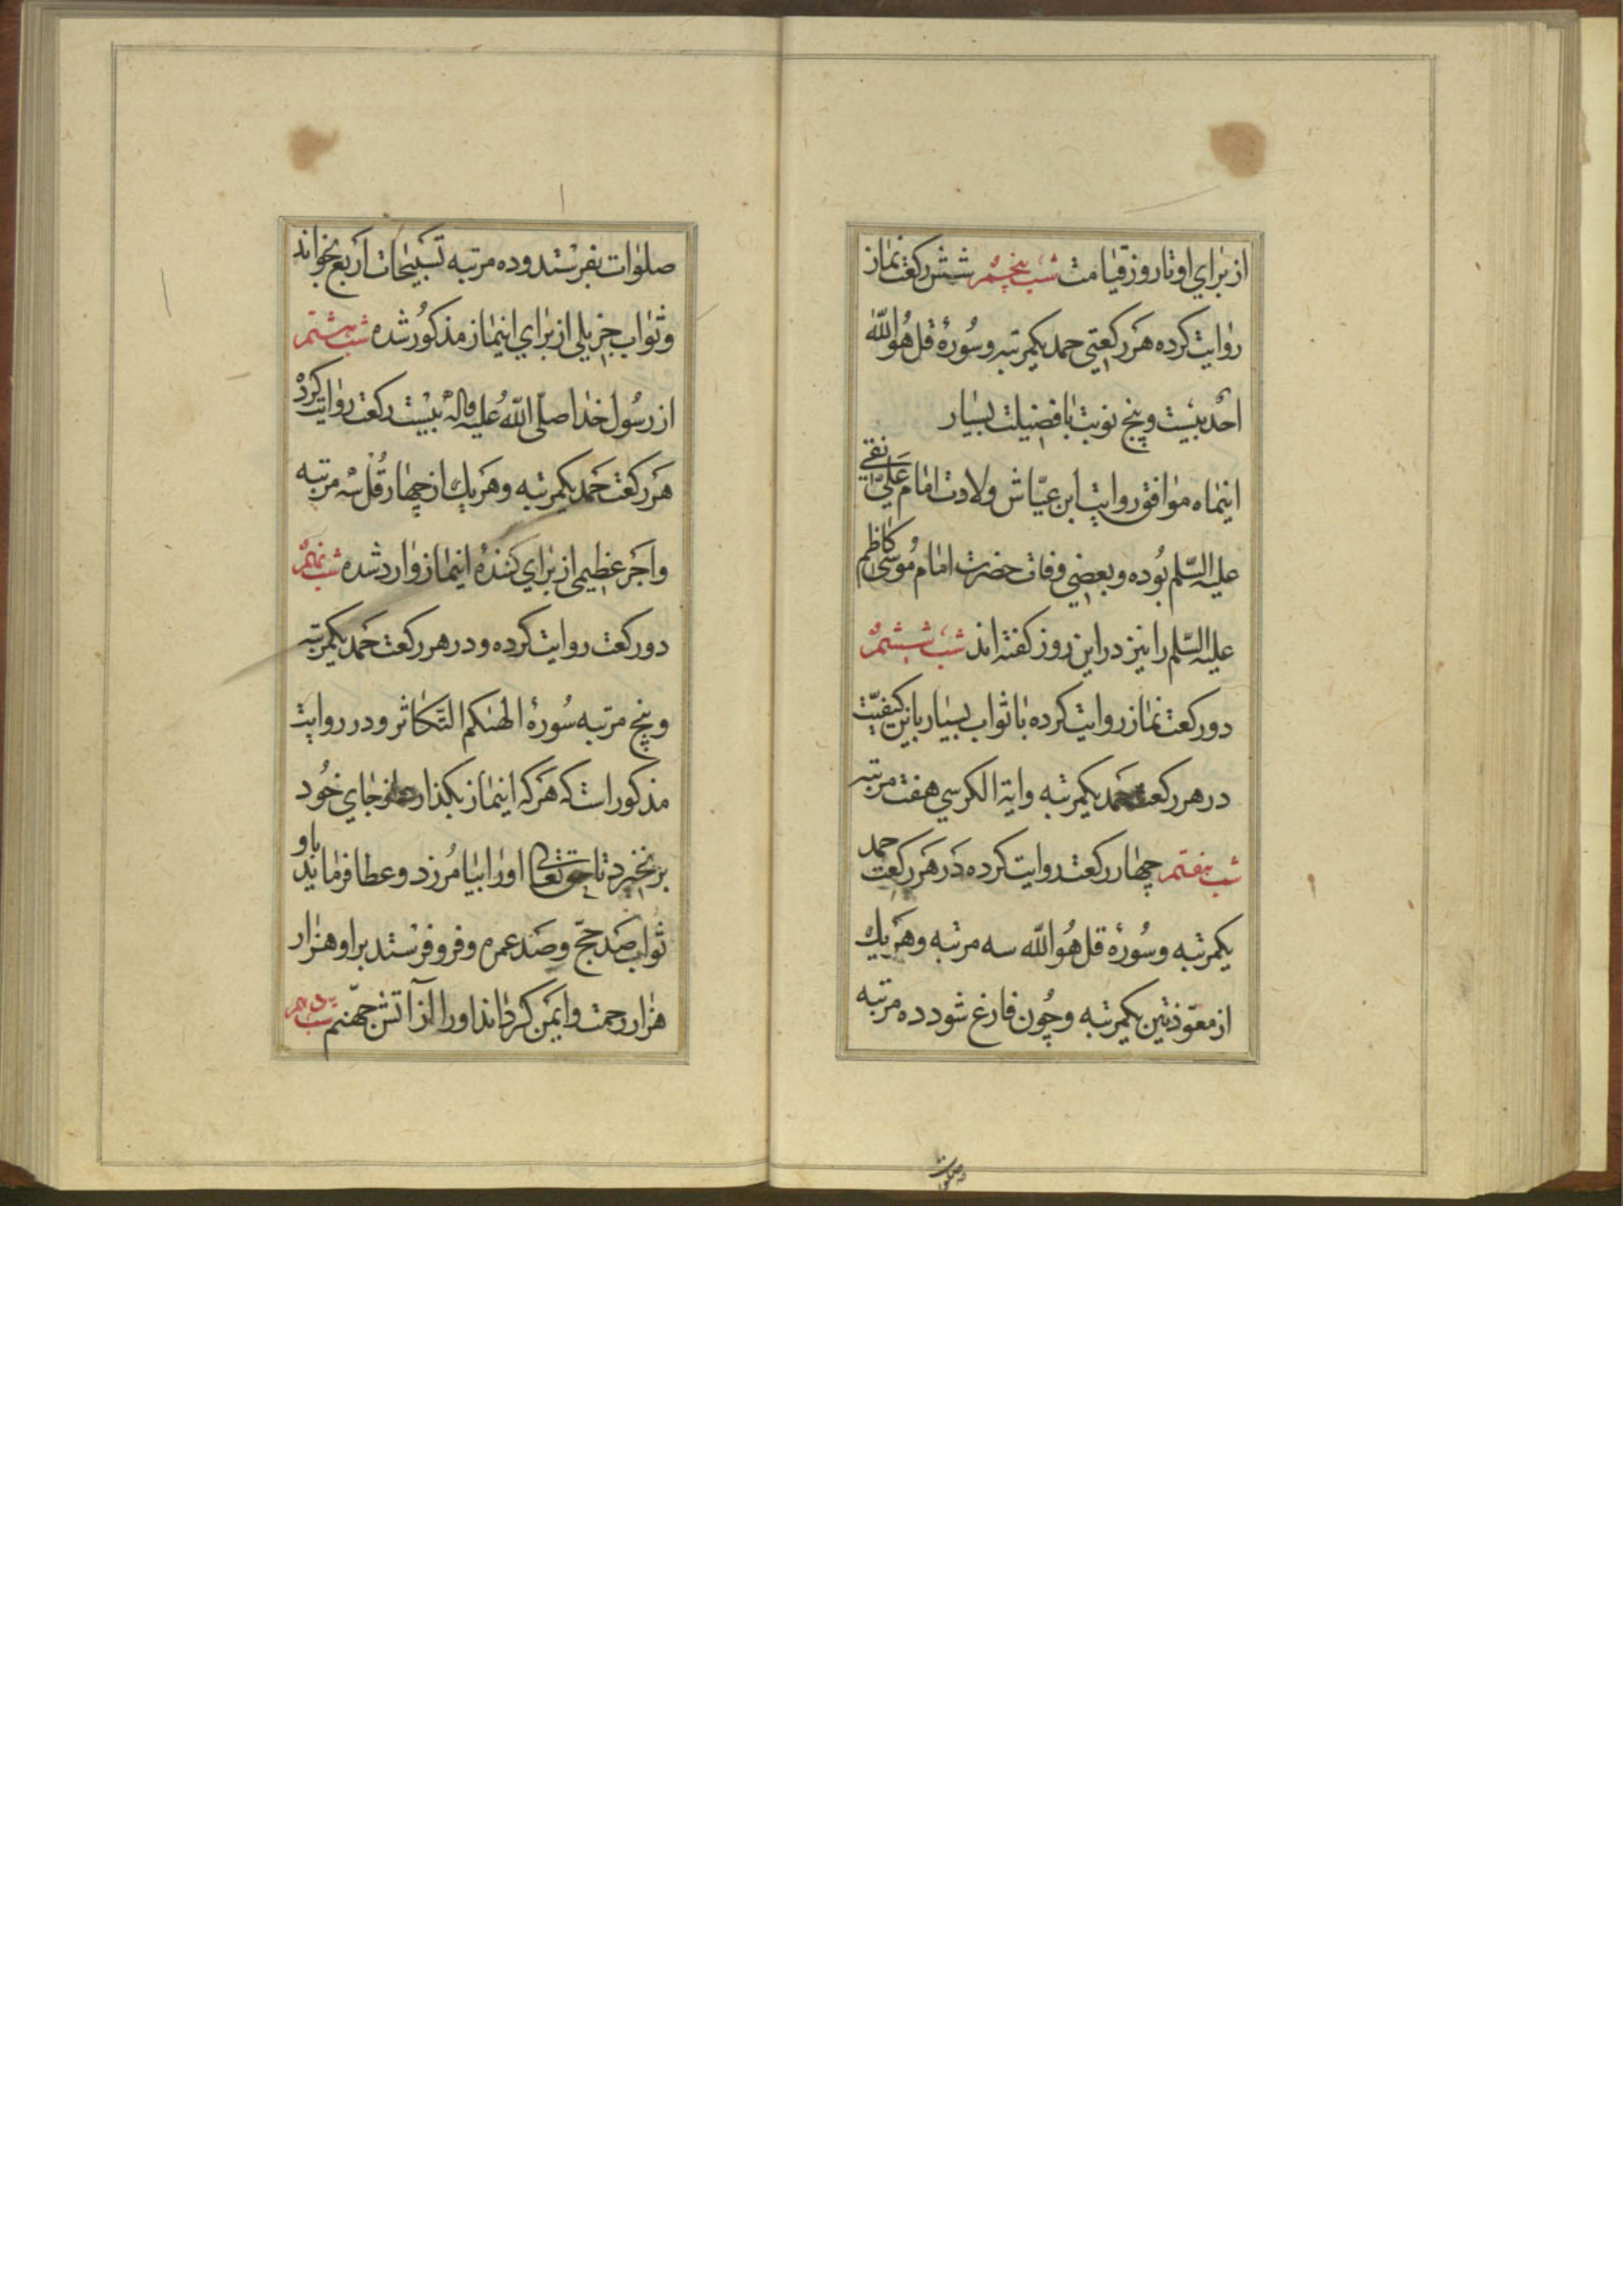 از برای او تا روز قیامت شب پنجم شش رکعت نماز
روایت کرده هر رکعتی حمد یکمرتبه و سُورهٔ قل هُو اللّه
احد بیست و پنج نوبت با فضیلت بسیار
اینماه موافق روایت ابن عیّاش ولادت امام علیّ نقی
علیه السّلم بوُده و بعضی وفات حضرت امام موُسی کاظم
علیه السّلم را نیز در این روز کفته اند شب ششم
دو رکعت نماز روایت کرده با ثواب بسیار باین کیفیّت
در هر رکعت حمد یکمرتبه و ایة الکرسی هفت مرتبه
شب هفتم چهار رکعت روایت کرده در هر رکعت حمد
یکمرتبه و سُورهٔ قل هُو اللّه سه مرتبه و هر یک
از معوّذتین یکمرتبه و چوُن فارغ شود ده مرتبه
صلوات
صلوات بفرستد و ده مرتبه تسبیحات اربع بخواند
و ثواب جزیلی از برای اینماز مذکوُر شده شب هشتم
از رسوُل خدا صلّی اللّهُ علیه واله بیست رکعت روایت کرد
هر رکعت حمد یکمرتبه و هر یک از چهار قُل سه مرتبه
و اجر عظیمی از برای کنندهٔ اینماز وارد شده شب نهم
دو رکعت روایت کرده و در هر رکعت حمد یکمرتبه
و پنج مرتبه سُورهٔ الهٰیکم التّکاثر و در روایت
مذکور است که هر که اینماز بکذارد از جای خُود
برنخیزد تا حق تعالی او را بیامُرزد و عطا فرماید باو
ثواب صد حجّ و صد عمره و فرو فرستد بر او هزار
هزار رحمت و ایمن کرداند او را از آتش جهنّم شب دهم